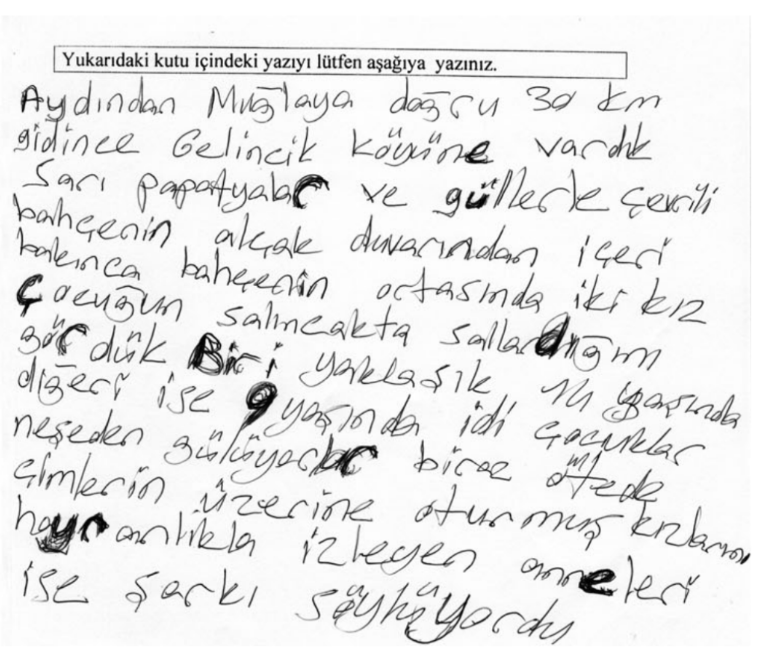 Yukarıdaki kutu içindeki yazıyı lütfen aşağıya yazınız.
Aydından Muğlaya doğru 30 km
gidince Gelincik köyüne vardık
Sarı papatyalar ve güllerle çevrili
bahçenin alçak duvarından içeri
bakınca bahçenin ortasında iki kız
çocuğun salıncakta sallandığını
gördük Biri yaklaşık 11 yaşında
diğeri ise 9 yaşında idi çocuklar
neşeden gülüyorlar biraz ötede
çimlerin üzerine oturmuş kızlarını
hayranlıkla izleyen anneleri
ise şarkı söylüyordu